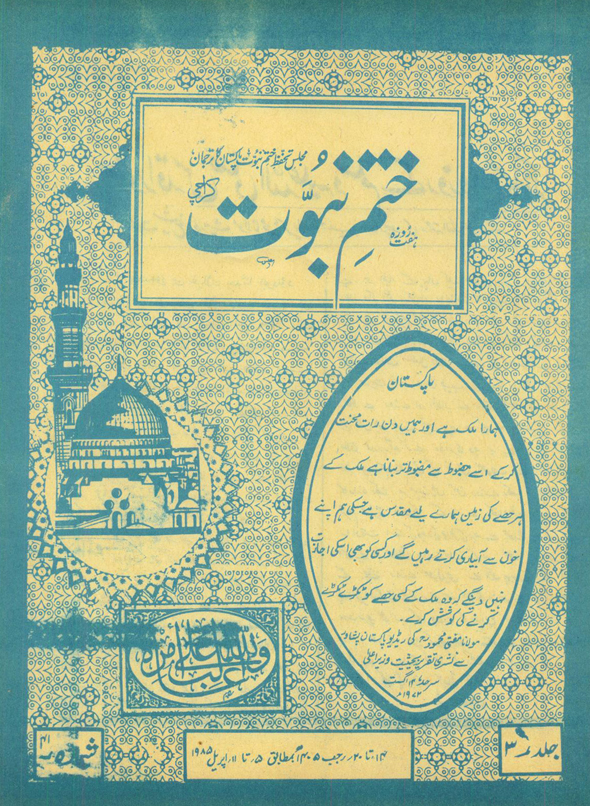 مجلس تحفظ ختم نبوت پاکستان کا ترجمان
ہفت روزہ
ختم نبوّت
کراچی
پاکستان
ہمارا ملک ہے اور ہمیں دن رات محنت
کرکے اسے مضبوط سے مضبوط تر بنانا ہے ملک کے
ہر حصے کی زمین ہمارے لیے مقدس ہے جسکی ہم اپنے
خون سے آبیاری کرتے رہیں گے اور کسی کو بھی اسکی اجازت
نہیں دینگے کہ وہ ملک کے کسی حصے کو ٹکڑے ٹکڑے
کرنے کی کوشش کرے۔
مولانا مفتی محمودؒ کی ریڈیو پاکستان پشاور
سے نشری تقریر بحیثیت وزیر اعلیٰ
۱۴ اگست
۱۹۷۲ء
والله غالب على أمره
جلد ۳
۱۴ تا ۲۰ رجب ۱۴۰۵ھ بمطابق ۵ تا ۱۱ اپریل ۱۹۸۵ء
شمارہ ۴۱